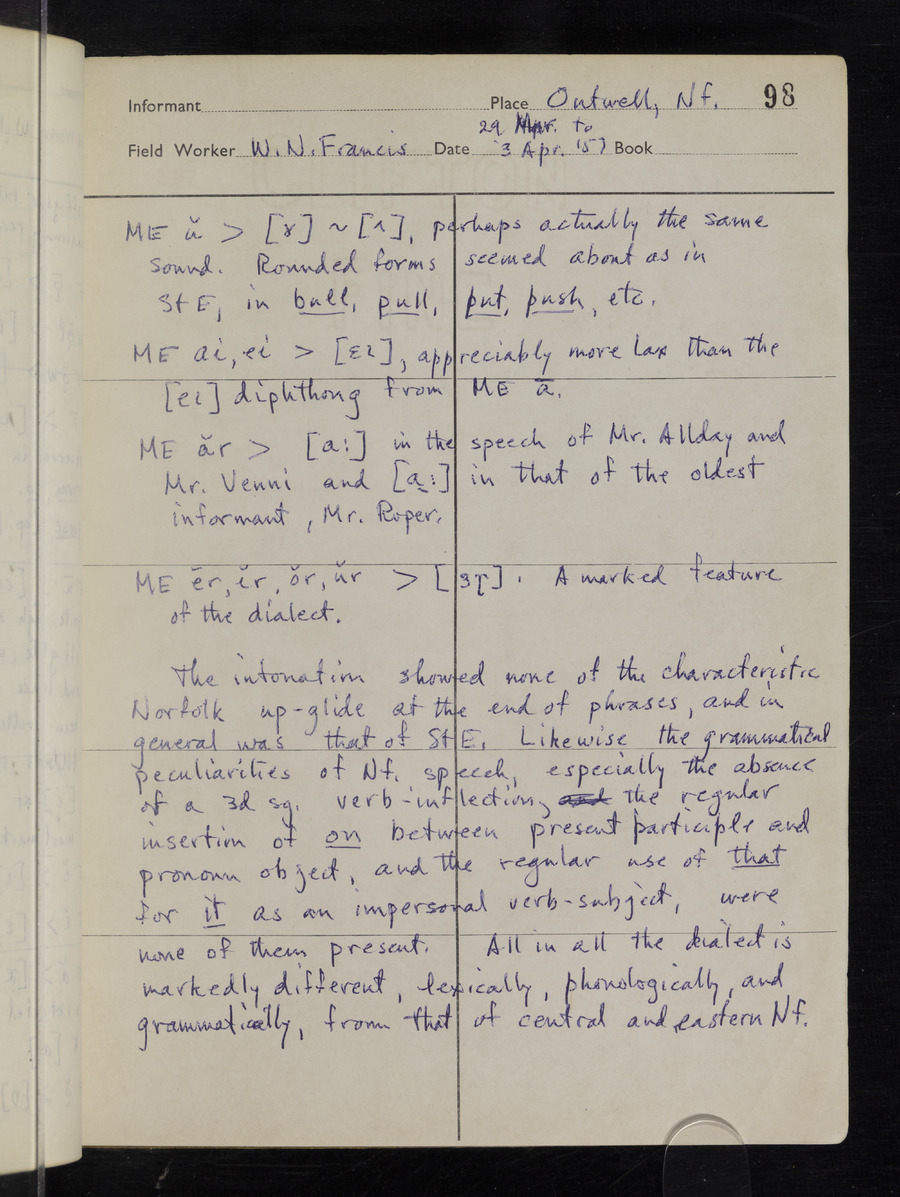 Informant Place Outwell, Nf. 98
29 Mar. to
Field Worker W.N. Francis Date 3 Apr. '57 Book
ME ŭ > [ɤ] ~ [ʌ], perhaps actually the same
sound. Rounded forms seemed about as in
StE, in bull, pull, put, push, etc.
ME ai, ei > [ɛɩ], appreciably more lax than the
[eɩ] diphthong from ME ā.
ME ăr > [a:] in the speech of Mr. Allday and
Mr. Venni and [a̠:] in that of the oldest
informant, Mr. Roper.
ME ĕr, ĭr, ŏr, ŭr > [ɜɽ]. A marked feature
of the dialect.
The intonation showed none of the characteristic
Norfolk up-glide at the end of phrases, and in
general was that of StE. Likewise the grammatical
peculiarities of Nf. speech, especially the absence
of a 3d sg. verb-inflection, and the regular
insertion of on between present participle and
pronoun object, and the regular use of that
for it as an impersonal verb-subject, were
none of them present. All in all the dialect is
markedly different, lexically, phonologically, and
grammatically, from that of central and eastern Nf.